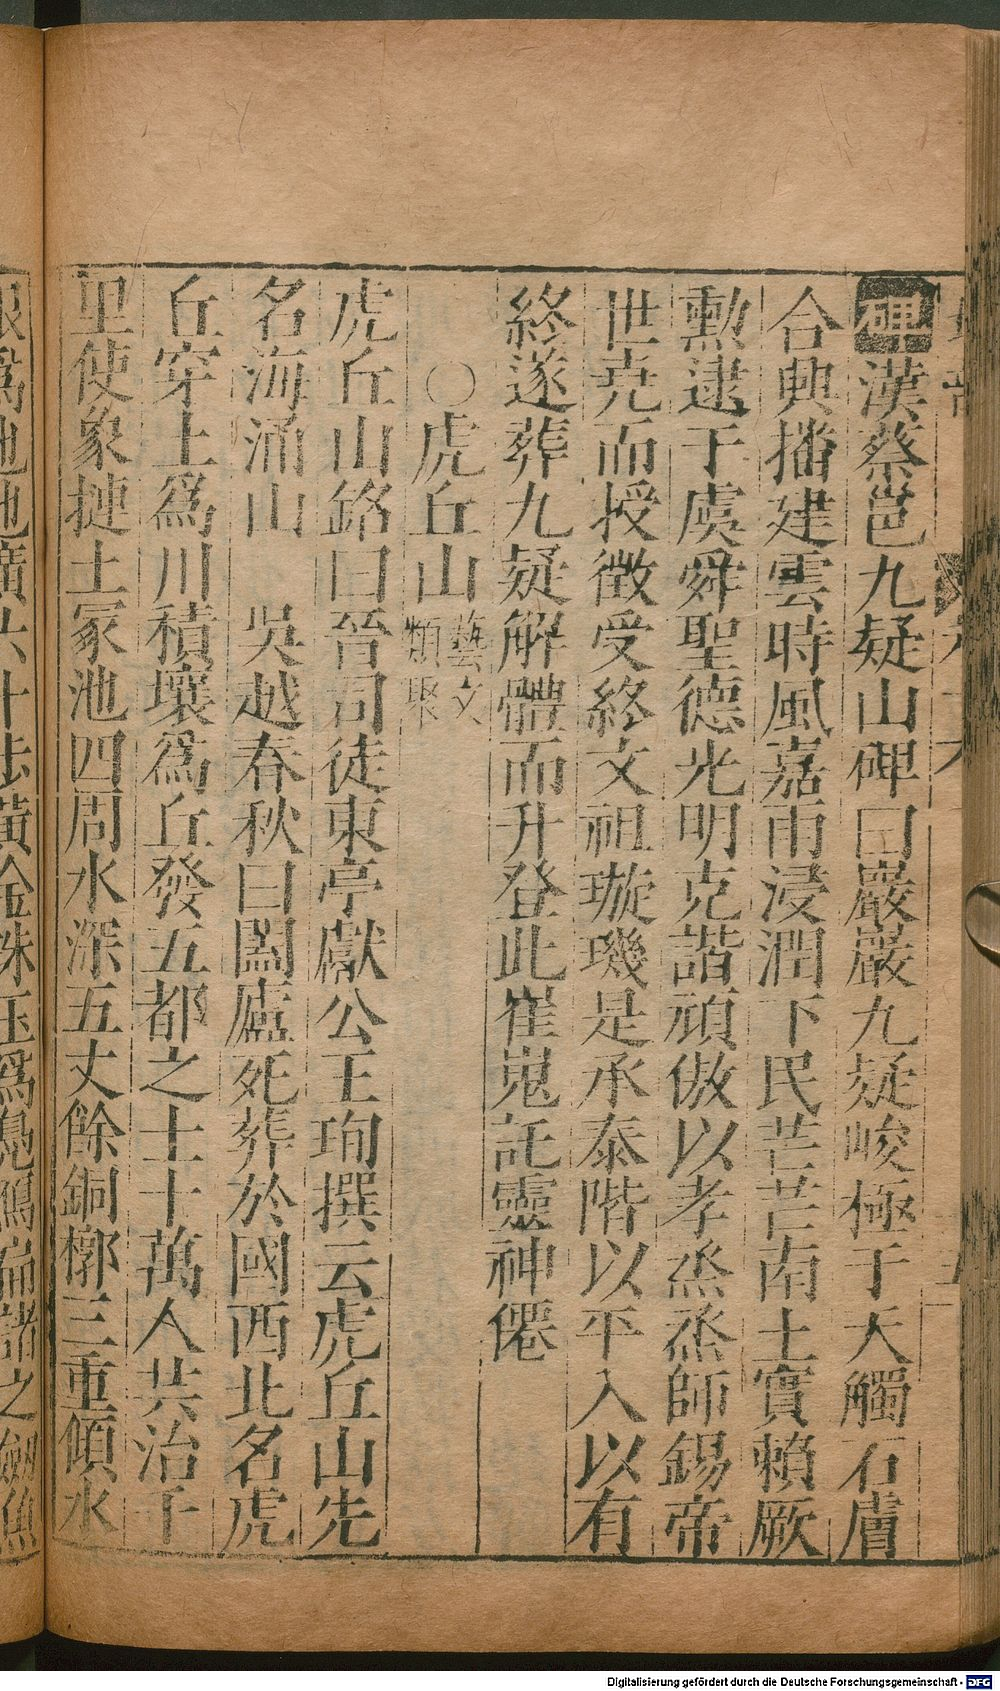 碑漢蔡邕九疑山碑曰巖巖九疑峻極于天觸石膚
合興播建雲時風嘉雨浸潤下民芒芒南土實賴厥
勳逮于虞舜聖德光明克諧頑傲以孝烝烝師錫帝
世堯而授徵受終文祖璇璣是承泰階以平入以有
終遂葬九疑解體而升登此崔嵬託靈神僊
○虎丘山藝文類聚
虎丘山銘曰晉司徒東亭獻公王珣撰云虎丘山先
名海涌山 吳越春秋曰闔廬死葬於國西北名虎
丘穿土爲川積壤爲丘發五都之士十萬人共治千
里使象摙土冢池四周水深五丈餘銅槨三重傾水
銀爲池池廣六十步黃金珠玉爲鳧鴈扁諸之劒魚
Digitalisierung gefördert durch die Deutsche Forschungsgemeinschaft - DFG